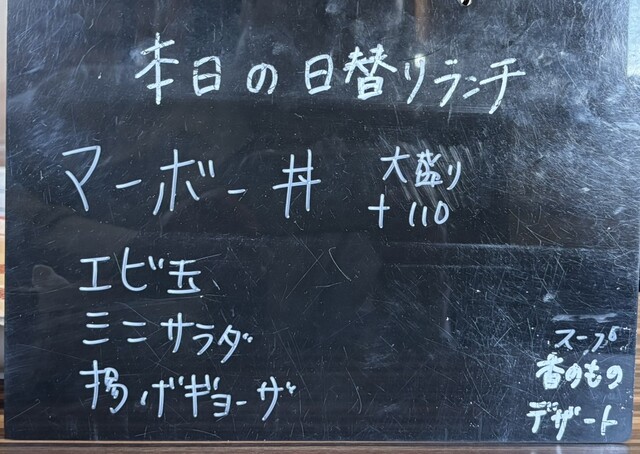 本日の日替りランチ
マーボー丼 大盛り
+110
エビ玉
ミニサラダ
揚げギョーザ
スープ
香のもの
デザート